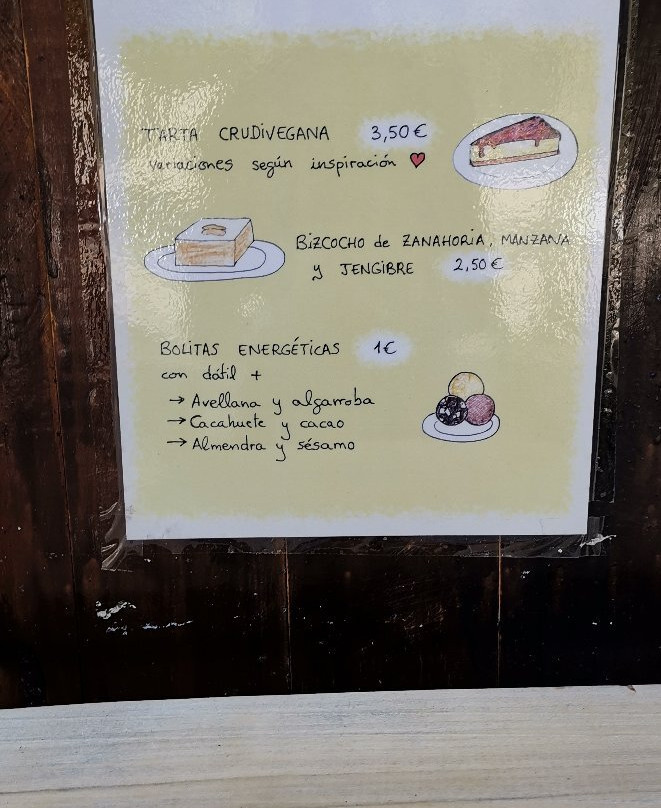 TARTA CRUDIVEGANA 3,50€
variaciones según inspiración ♥
BIZCOCHO de ZANAHORIA, MANZANA
y JENGIBRE 2,50€
BOLITAS ENERGÉTICAS 1€
con dátil +
→ Avellana y algarroba
→ Cacahuete y cacao
→ Almendra y sésamo